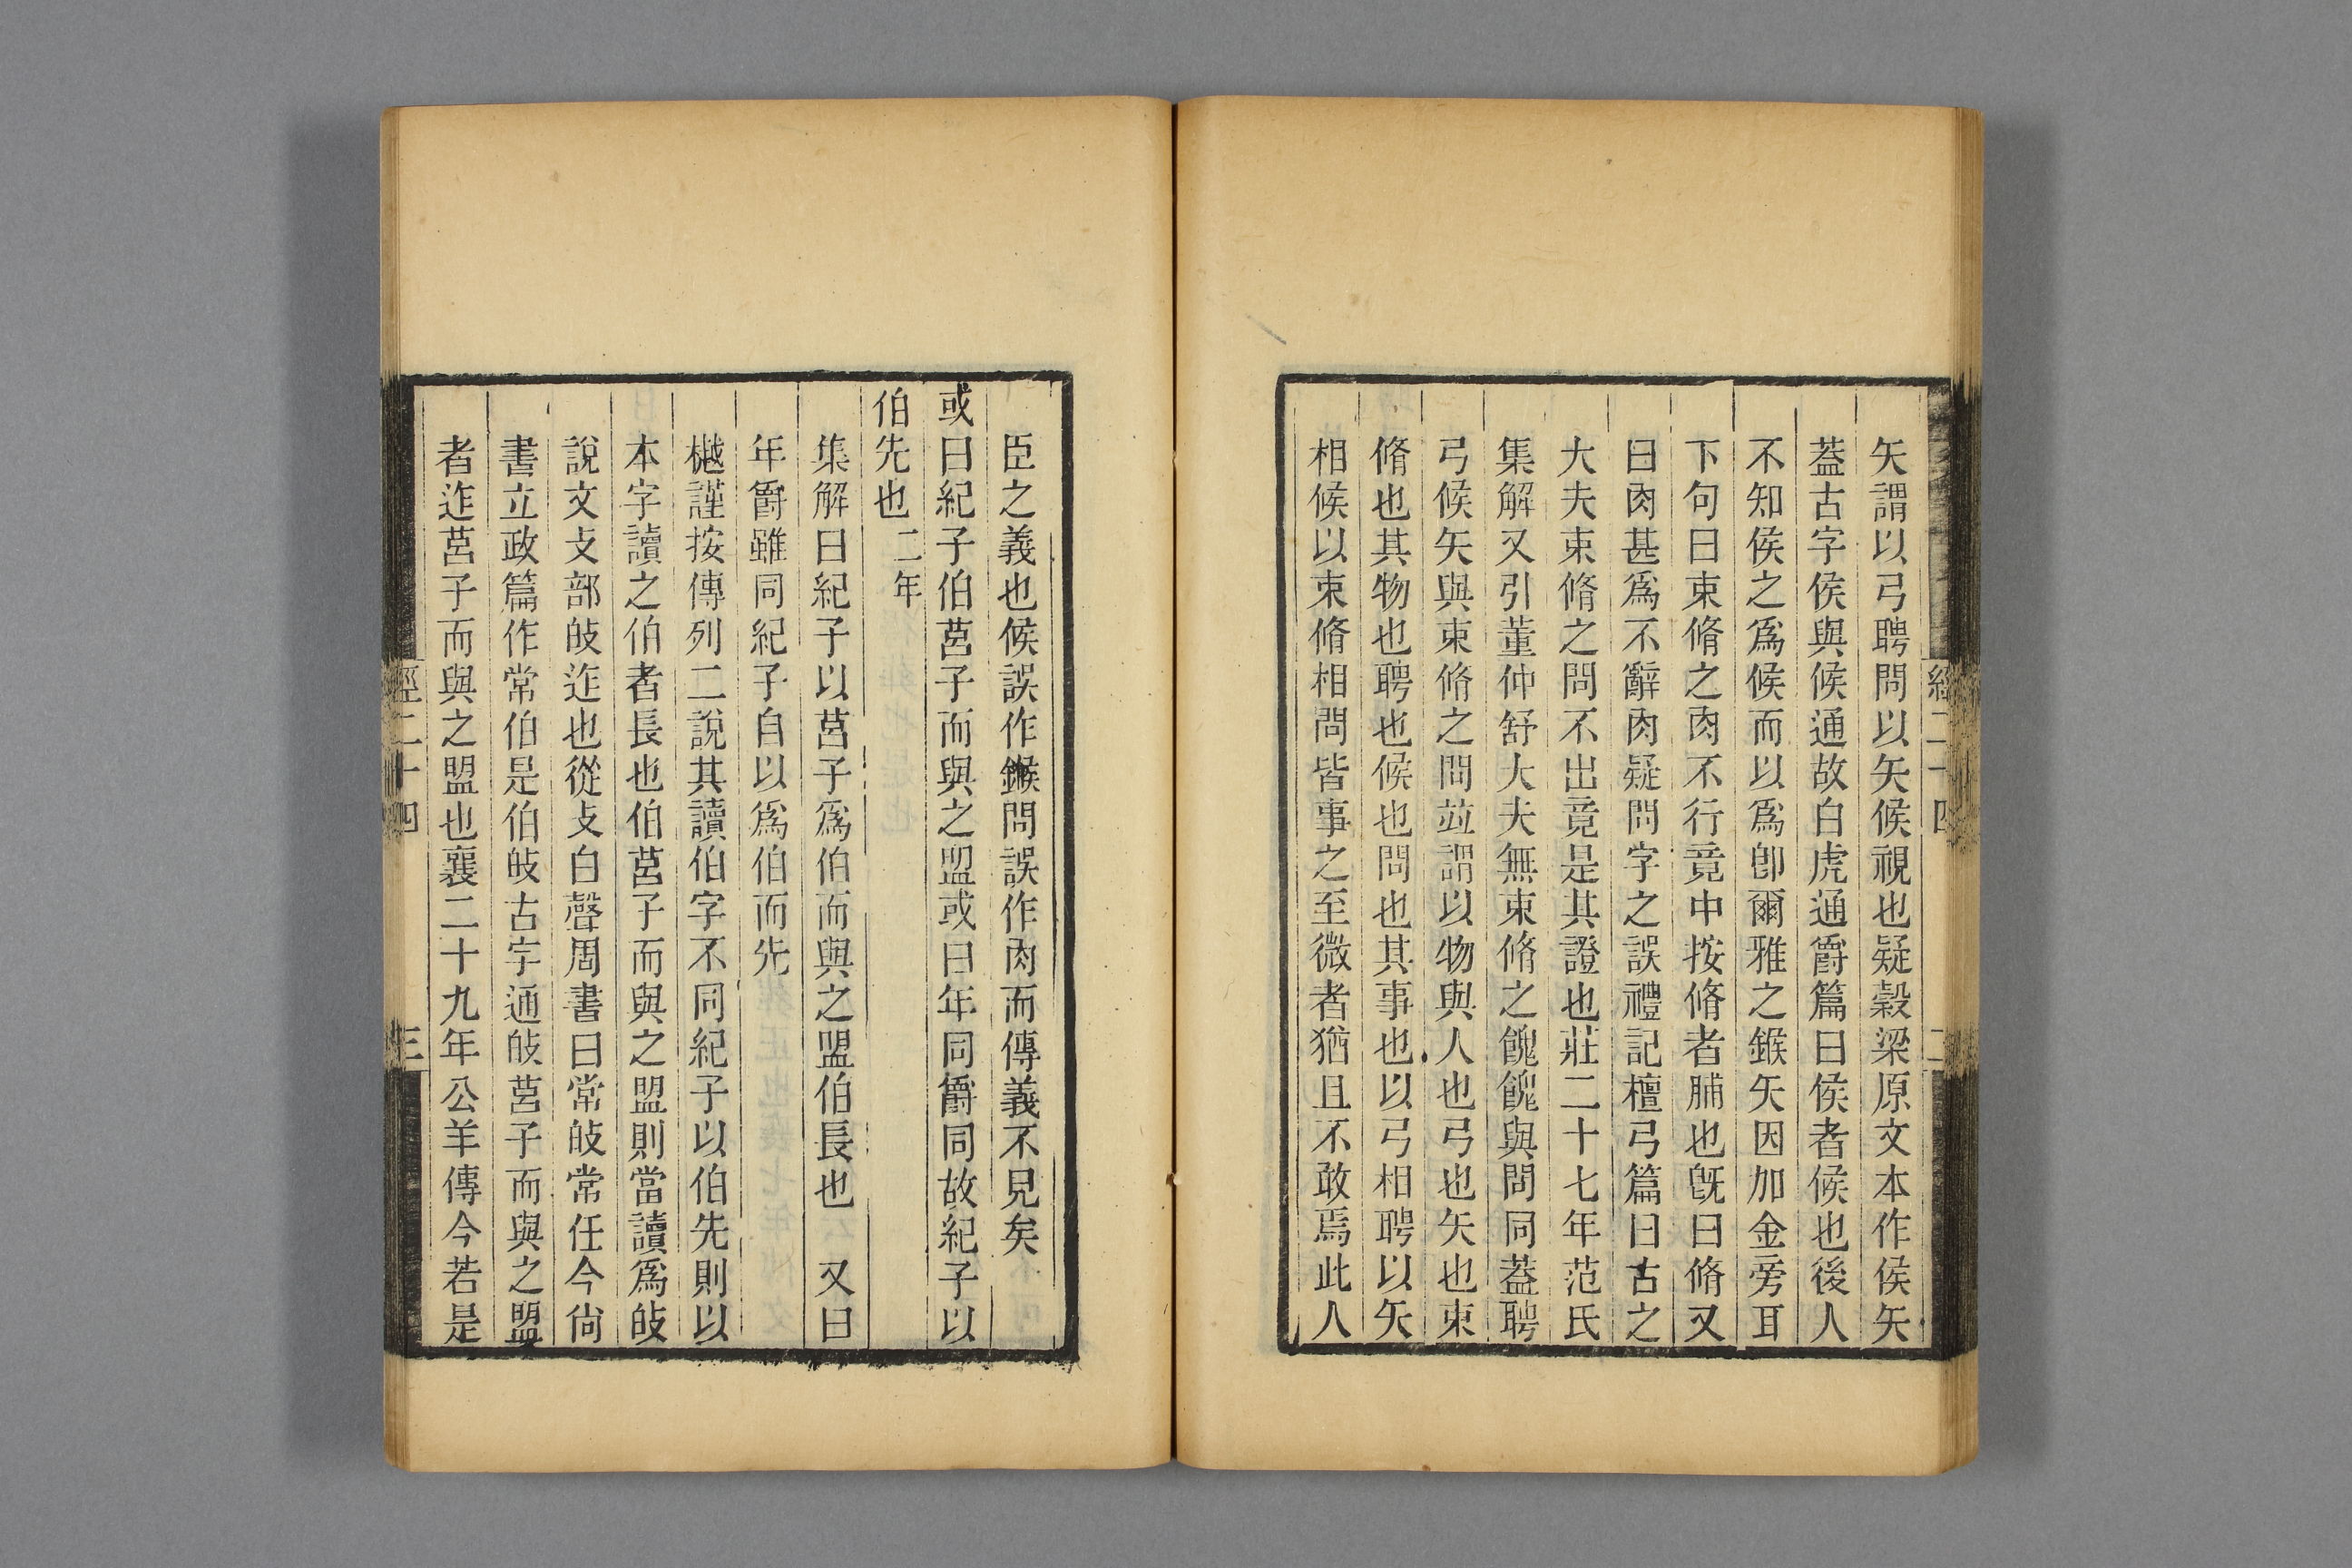 矢謂以弓聘問以矢候視也疑穀梁原文本作侯矢
蓋古字侯與候通故白虎通爵篇曰侯者候也後人
不知侯之爲候而以爲卽爾雅之鍭矢因加金旁耳
下句曰束脩之肉不行竟中按脩者脯也旣曰脩又
曰肉甚爲不辭肉疑問字之誤禮記檀弓篇曰古之
大夫束脩之問不出竟是其證也莊二十七年范氏
集解又引董仲舒大夫無束脩之餽餽與問同蓋聘
弓候矢與束脩之問竝謂以物與人也弓也矢也束
脩也其物也聘也候也問也其事也以弓相聘以矢
相候以束脩相問皆事之至微者猶且不敢焉此人
經二十四
二
臣之義也候誤作鍭問誤作肉而傳義不見矣
或曰紀子伯莒子而與之盟或曰年同爵同故紀子以
伯先也 二年
集解曰紀子以莒子爲伯而與之盟伯長也 又曰
年爵雖同紀子自以爲伯而先
樾謹按傳列二說其讀伯字不同紀子以伯先則以
本字讀之伯者長也伯莒子而與之盟則當讀爲敀
說文攴部敀迮也從攴白聲周書曰常敀常任今尙
書立政篇作常伯是伯敀古字通敀莒子而與之盟
者迮莒子而與之盟也襄二十九年公羊傳今若是
經二十四
三